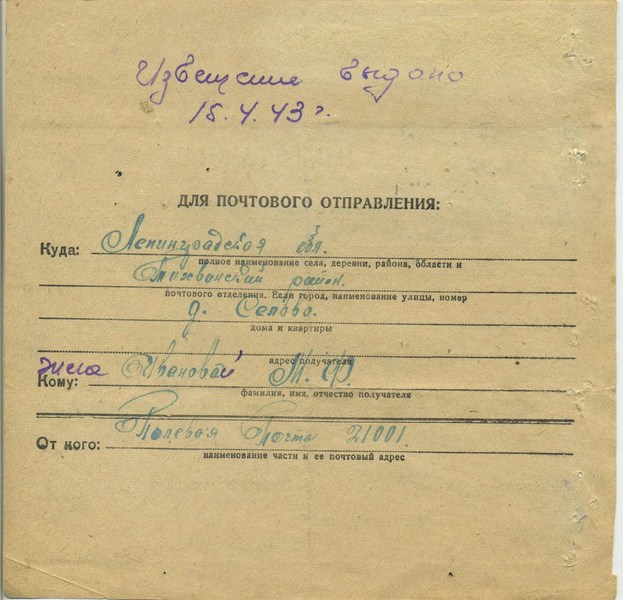 Извещение выдано
15.4.43 г.
ДЛЯ ПОЧТОВОГО ОТПРАВЛЕНИЯ:
Куда: Ленинградская обл.
полное наименование села, деревни, района, области и
Тихвинский район.
почтового отделения. Если город, наименование улицы, номер
д.
дома и квартиры
адрес получателя
жена
Кому: Ивановой М. Ф.
фамилия, имя, отчество получателя
От кого: Полевая Почта 21001.
наименование части и ее почтовый адрес